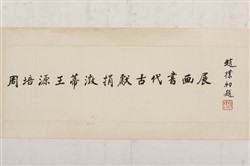 周培源王蒂澂捐献古代书画展
趙樸初題